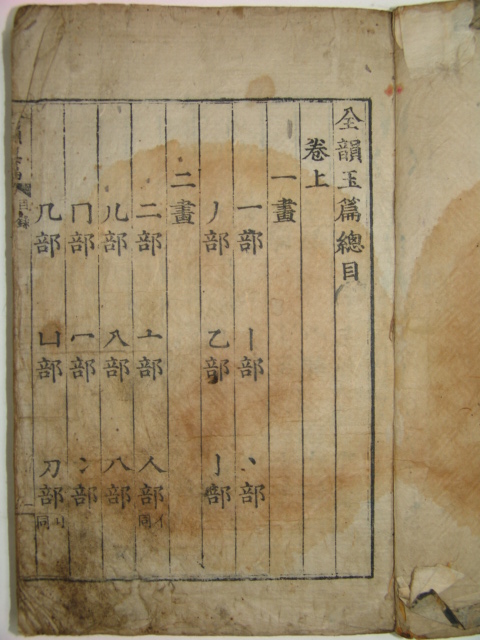 全韻玉篇總目
卷上
一畫
一部 丨部 丶部
丿部 乙部 亅部
二畫
二部 亠部 人部亻同
儿部 入部 八部
冂部 冖部 冫部
几部 凵部 刀部刂同